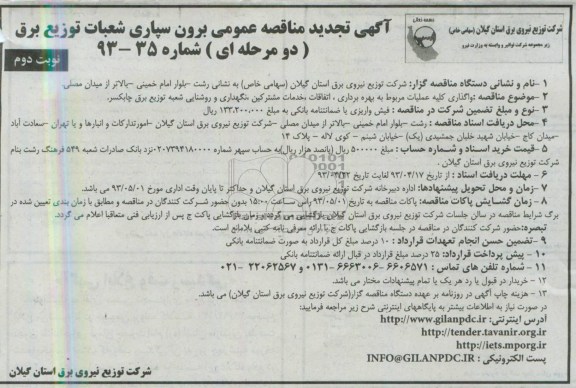 شرکت توزیع نیروی برق استان گیلان (سهامی خاص)
زیر مجموعه شرکت توانیر و وابسته به وزارت نیرو
آگهی تجدید مناقصه عمومی برون سپاری شعبات توزیع برق
( دو مرحله ای ) شماره ۳۵ -۹۳
نوبت دوم
۱ -نام و نشانی دستگاه مناقصه گزار: شرکت توزیع نیروی برق استان گیلان (سهامی خاص) به نشانی رشت -بلوار امام خمینی -بالاتر از میدان مصلی.
۲ -موضوع مناقصه :واگذاری کلیه عملیات مربوط به بهره برداری ، اتفاقات ،خدمات مشترکین ،نگهداری و روشنایی شعبه توزیع برق چابکسر.
۳ -نوع و مبلغ تضمین شرکت در مناقصه : فیش واریزی یا ضمانتنامه بانکی به مبلغ ۱۳۳,۴۰۰,۰۰۰ ریال
۴ -محل دریافت اسناد مناقصه : رشت -بلوار امام خمینی -بالاتر از میدان مصلی -شرکت توزیع نیروی برق استان گیلان -امورتدارکات و انبارها و یا تهران -سعادت آباد
-میدان کاج -خیابان شهید خلبان جمشیدی (یک) -خیابان شبنم - کوی لاله - پلاک ۱۳
۵ -قیمت خرید اسناد و شماره حساب : مبلغ ۵۰۰۰۰۰ ریال (پانصد هزار ریال)به حساب سپهر شماره ۰۲۰۷۳۹۴۱۸۰۰۰۰-نزد بانک صادرات شعبه ۵۴۹ فرهنگ رشت بنام
شرکت توزیع نیروی برق استان گیلان .
۶ - مهلت دریافت اسناد : از تاریخ ۹۳/۰۴/۱۷ لغایت تاریخ ۹۳/۰۴/۲۲
۷ -زمان و محل تحویل پیشنهادها: اداره دبیرخانه شرکت توزیع نیروی برق استان گیلان و حداکثر تا پایان وقت اداری مورخ ۹۳/۰۵/۰۱ می باشد.
۸ - زمان گشایش پاکات مناقصه: پاکات مناقصه به تاریخ ۹۳/۰۵/۰۱ راس ساعت ۱۵:۰۰ بدون حضور شرکت کنندگان در مناقصه و مطابق با زمان بندی تعیین شده در
برگ شرایط مناقصه در سالن جلسات شرکت توزیع نیروی برق استان گیلان بازگشایی می گردد و زمان بازگشایی پاکت ج پس از ارزیابی فنی متعاقبا اعلام می گردد.
تبصره:حضور شرکت کنندگان در مناقصه در جلسه بازگشایی پاکات ج با ارائه معرفی نامه کتبی بلامانع است.
۹ -تضمین حسن انجام تعهدات قرارداد : ۱۰ درصد مبلغ کل قرارداد به صورت ضمانتنامه بانکی
۱۰ - پیش پرداخت قرارداد: ۲۵ درصد مبلغ قرارداد در قبال ارائه ضمانتنامه بانکی
۱۱ - شماره تلفن های تماس : ۶۶۰۶۵۷۱ -۶۶۶۳۰۰۶ -۰۱۳۱ و ۲۲۰۶۲۵۶۷ -۰۲۱
۱۲ - خریدار در قبول یا رد هر یک یا تمام پیشنهادات مختار می باشد.
۱۳ - هزینه چاپ آگهی در روزنامه بر عهده دستگاه مناقصه گزار(شرکت توزیع نیروی برق استان گیلان) می باشد.
در صورت نیاز به اطلاعات بیشتر به پایگاههای اینترنتی شرح زیر مراجعه فرمایید:
آدرس اینترنتی: http://www.gilanpdc.ir
http://tender.tavanir.org.ir
http://iets.mporg.ir
پست الکترونیکی : INFO@GILANPDC.IR
شرکت توزیع نیروی برق استان گیلان